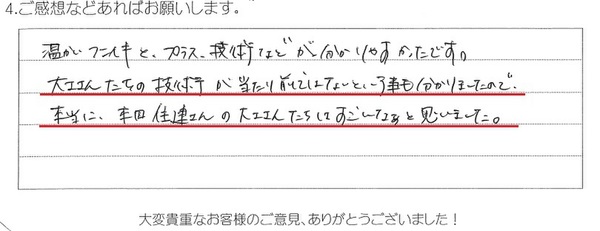 4.ご感想などあればお願いします。
温かい フンイキと、プラス、技術などが分かりやすかったです。
大工さんたちの技術が当たり前ではないという事も分かりましたので、
本当に、本田住建さんの大工さんたちはすごいなぁと思いました。
大変貴重なお客様のご意見、ありがとうございました！